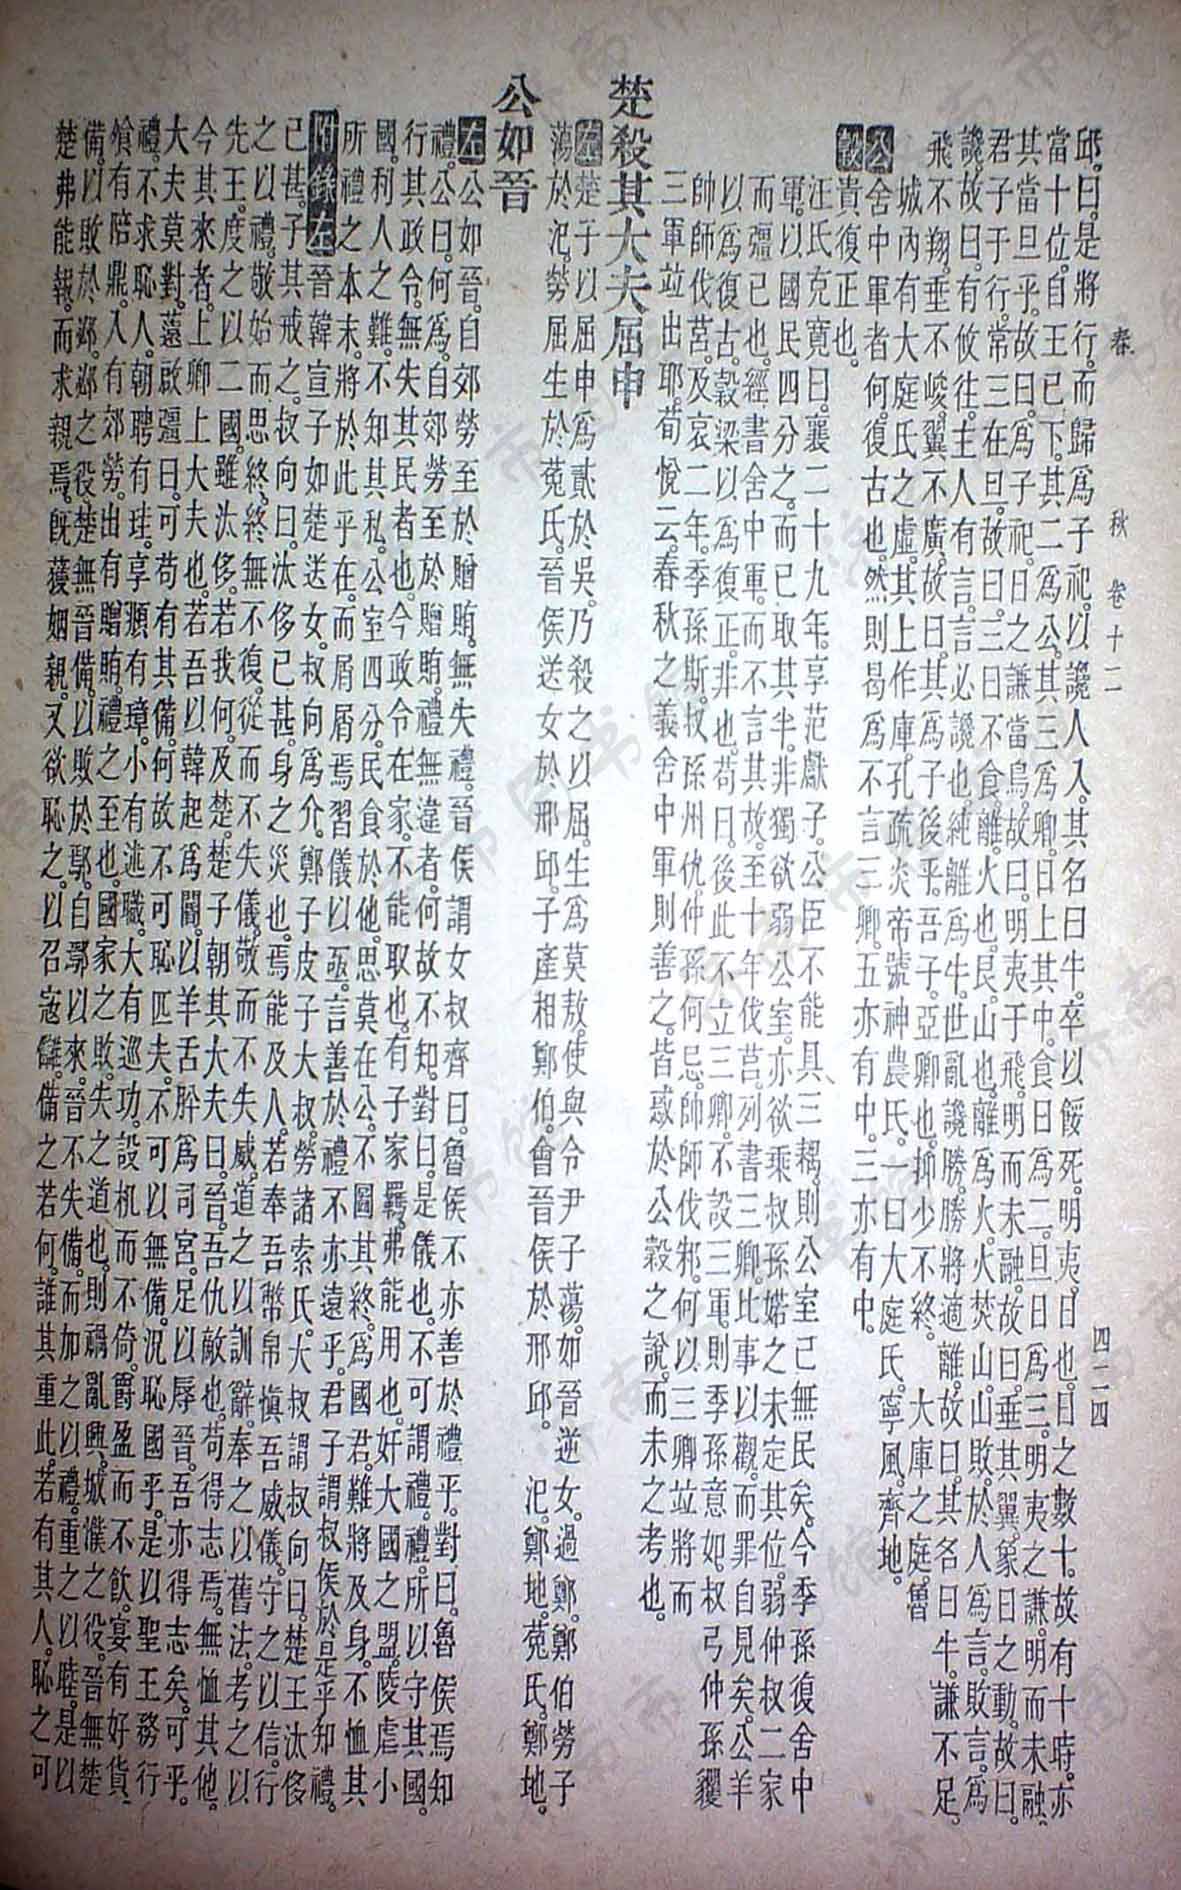 春秋 卷十二 四二四
邱曰是將行而歸爲子祀以讒人入其名曰牛卒以餒死明夷日也日之數十故有十時亦
當十位自王已下其二爲公其三爲卿日上其中食日爲二旦日爲三明夷之謙明而未融
其當旦乎故曰爲子祀日之謙當鳥故曰明夷于飛明而未融故曰垂其翼象日之動故曰
君子于行當三在旦故曰三日不食離火也艮山也離爲火火焚山山敗於人爲言敗言爲
讒故曰有攸往主人有言言必讒也純離爲牛世亂讒勝勝將適離故曰其名曰牛謙不足
飛不翔垂不峻翼不廣故曰其爲子後乎吾子亞卿也抑少不終 大庫之庭魯
城內有大庭氏之虛其上作庫孔疏炎帝號神農氏一曰大庭氏寧風齊地
公舍中軍者何復古也然則曷爲不言三卿五亦有中三亦有中
穀貴復正也
汪氏克寬曰襄二十九年享范獻子公臣不能具三耦則公室已無民矣今季孫復舍中
軍以國民四分之而已取其半非獨欲弱公室亦欲乘叔孫婼之未定其位弱仲叔二家
而彊已也經書舍中軍而不言其故至十年伐莒列書三卿比事以觀而罪自見矣公羊
以爲復古穀梁以爲復正非也苟曰後此不立三卿不設三軍則季孫意如叔弓仲孫貜
帥師伐莒及哀二年季孫斯叔孫州仇仲孫何忌帥師伐邾何以三卿竝將而
三軍竝出耶荀悅云春秋之義舍中軍則善之皆惑於公穀之說而未之考也
楚殺其大夫屈申
左楚子以屈申爲貳於吳乃殺之以屈生爲莫敖使與令尹子蕩如晉逆女過鄭鄭伯勞子
蕩於汜勞屈生於菟氏晉侯送女於邢邱子產相鄭伯會晉侯於邢邱 汜鄭地菟氏鄭地
公如晉
左公如晉自郊勞至於贈賄無失禮晉侯謂女叔齊曰魯侯不亦善於禮乎對曰魯侯焉知
禮公曰何爲自郊勞至於贈賄禮無違者何故不知對曰是儀也不可謂禮禮所以守其國
行其政令無失其民者也今政令在家不能取也有子家羈弗能用也奸大國之盟陵虐小
國利人之難不知其私公室四分民食於他思莫在公不圖其終爲國君難將及身不恤其
所禮之本末將於此乎在而屑屑焉習儀以亟言善於禮不亦遠乎君子謂叔侯於是乎知禮
附錄左晉韓宣子如楚送女叔向爲介鄭子皮子大叔勞諸索氏大叔謂叔向曰楚王汰侈
已甚子其戒之叔向曰汰侈已甚身之災也焉能及人若奉吾幣帛愼吾威儀守之以信行
之以禮敬始而思終終無不復從而不失儀敬而不失威道之以訓辭奉之以舊法考之以
先王度之以二國雖汰侈若我何及楚楚子朝其大夫曰晉吾仇敵也苟得志焉無恤其他
今其來者上卿上大夫也若吾以韓起爲閽以羊舌肸爲司宮足以辱晉吾亦得志矣可乎
大夫莫對薳啟彊曰可苟有其備何故不可恥匹夫不可以無備況恥國乎是以聖王務行
禮不求恥人朝聘有珪享頫有璋小有述職大有巡功設机而不倚爵盈而不飲宴有好貨
飧有陪鼎入有郊勞出有贈賄禮之至也國家之敗失之道也則禍亂興城濮之役晉無楚
備以敗於邲邲之役楚無晉備以敗於鄢自鄢以來晉不失備而加之以禮重之以睦是以
楚弗能報而求親焉旣獲姻親又欲恥之以召寇讎備之若何誰其重此若有其人恥之可